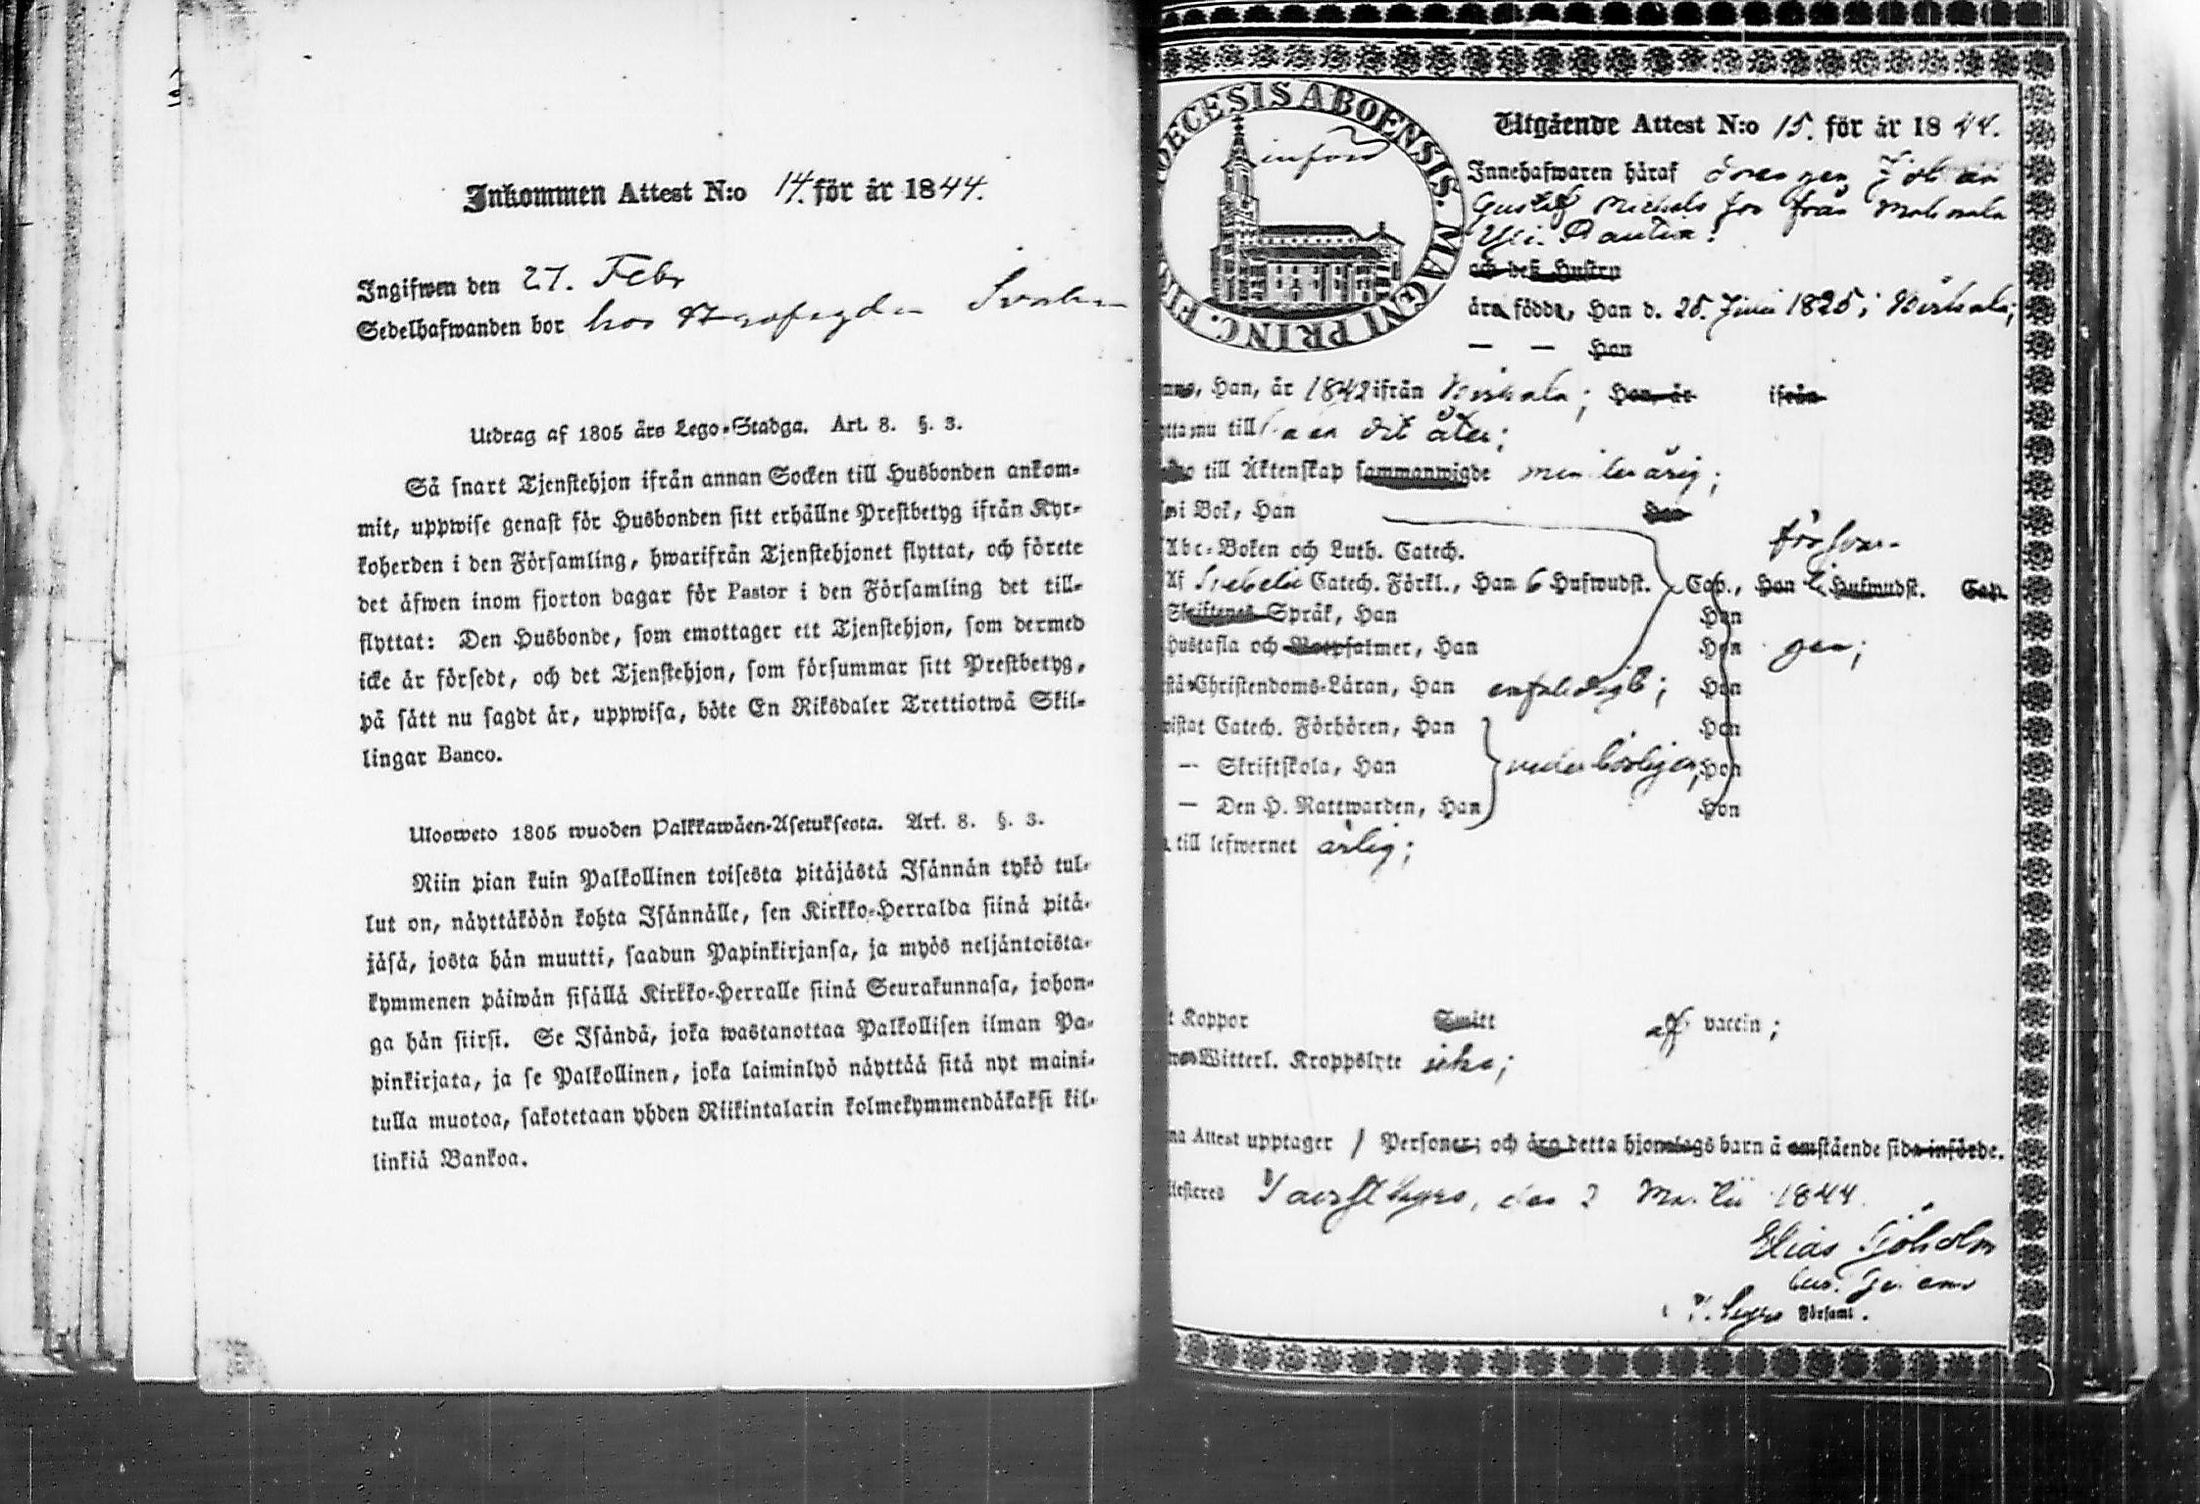 Inkommen Attest N:o 14. för år 1844.
Ingifwen den 27. Febr
Sedelhafwanden bor hos
Utdrag af 1805 års Lego-Stadga. Art. 8. §. 3.
Så snart Tjenstehjon ifrån annan Socken till Husbonden ankom-
mit, uppwise genast för Husbonden sitt erhållne Prestbetyg ifrån Kyr-
koherden i den Församling, hwarifrån Tjenstehjonet flyttat, och förete
det äfwen inom fjorton dagar för Pastor i den Församling det till-
flyttat: Den Husbonde, som emottager ett Tjenstehjon, som dermed
icke är försedt, och det Tjenstehjon, som försummar sitt Prestbetyg,
på sätt nu sagdt är, uppwisa, böte En Riksdaler Trettiotwå Skil-
lingar Banco.
Ulosweto 1805 wuoden Palkkawäen-Asetuksesta. Art. 8. §. 3.
Niin pian kuin Palkollinen toisesta pitäjästä Isännän tykö tul-
lut on, näyttäköön kohta Isännälle, sen Kirkko-Herralda siinä pitä-
jäsä, josta hän muutti, saadun Papinkirjansa, ja myös neljäntoista-
kymmenen päiwän sisällä Kirkko-Herralle siinä Seurakunnasa, johon-
ga hän siirsi. Se Isändä, joka wastanottaa Palkollisen ilman Pa-
pinkirjata, ja se Palkollinen, joka laiminlyö näyttää sitä nyt maini-
tulla muotoa, sakotetaan yhden Riikintalarin kolmekymmendäkaksi kil-
linkiä Bankoa.
DIOECESIS ABOENSIS. MAGNI PRINC. FIN
införd
Utgående Attest N:o 15. för år 1844.
Innehafwaren häraf drengen Johan
Gustaf Michels son från
Yli
och deß Hustru
ära födde, Han d. 25. Juni 1825 i
— — Hon
Han, år 1842 ifrån ; Hon, år ifrån
nu till dit åter;
till Äktenskap sammanwigde ;
i Bok, Han Hon
Abc-Boken och Luth. Catech. försvar-
Af Svebelii Catech. Förkl., Han 6 Hufwudst. Cap., Hon Hufwudst. Cap.
Skriftenes Språk, Han Hon
Hustafla och Botpsalmer, Han Hon gen;
Christendoms-Läran, Han enfaldigt; Hon
Catech. Förhören, Han Hon
— Skriftskola, Han vederbörligen; Hon
— Den H. Nattwarden, Han Hon
till lefwernet ärlig;
Koppor Smitt af vaccin;
Witterl. Kroppslyte icke;
Attest upptager 1 Personer; och ära detta hjonelags barn å omstående sida införde.
Tavastkyro, den 2 Martii 1844.
Elias Sjöholm
i T. Kyro Församl.